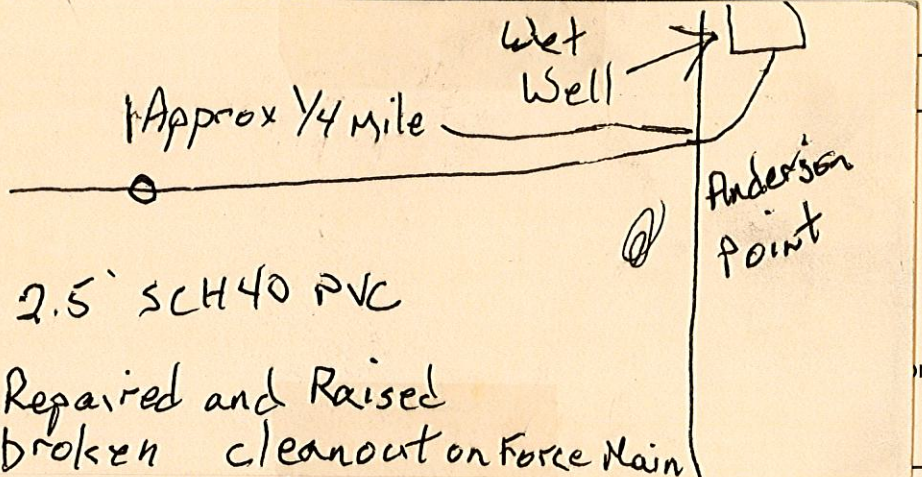 Wet
Well
Approx 1/4 Mile
Anderson
Point
2.5" SCH40 PVC
Repaired and Raised
broken cleanout on Force Main